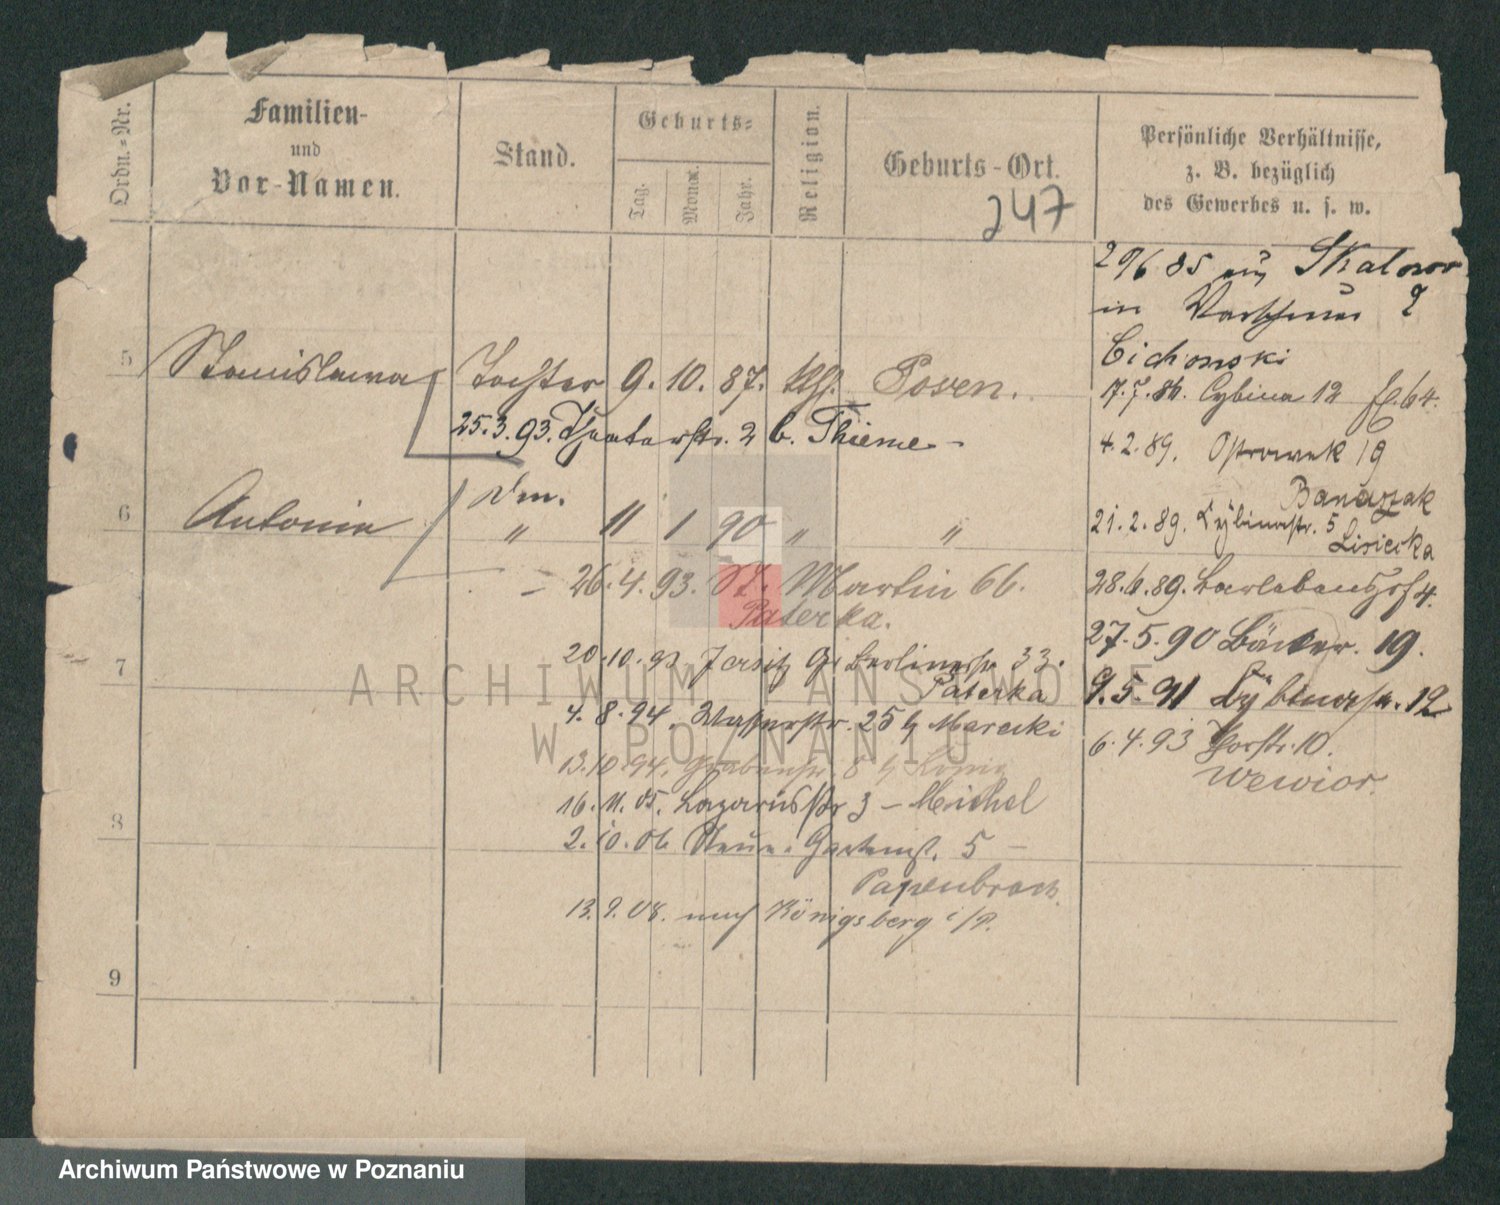 Ordn.-Nr.
Familien-
und
Vor-Namen.
Stand.
Geburts-
Tag.
Monat.
Jahr.
Religion.
Geburts-Ort.
247
Persönliche Verhältnisse,
z. B. bezüglich
des Gewerbes u. s. w.
5 Stanislawa Tochter 9. 10. 87. kth. Posen.
25.3.93. Theaterstr. 2 b. Thieme
6 Antonie
" 11 1 90 " "
26.4.93. St. Martin 66.
Paterka.
7
20.10.93. Jersitz Gr. Berlinerstr. 33.
Paterka
4.8.94. Wasserstr. 25 b Marecki
13.10.94. Grabenstr. 8 b
16.11.05. Lazarusstr 3 - Michel
8
2.10.06 Neue Gartenst. 5 -
Papenbrock.
13.9.08. nach Königsberg i/P.
9
29/6 85 aus
in
Cichonski
17.7.86. Cybina 12 fl. 64.
4.2.89. Ostrowek 19
Banaszak
21.2.89. Cybinastr. 5
Lisiecka
28.6.89. 4.
27.5.90 Bäcker. 19.
9.5.91 Cybinastr. 12
6.4.93 Torstr. 10.
Wewior.
ARCHIWUM PAŃSTWOWE
W POZNANIU
Archiwum Państwowe w Poznaniu